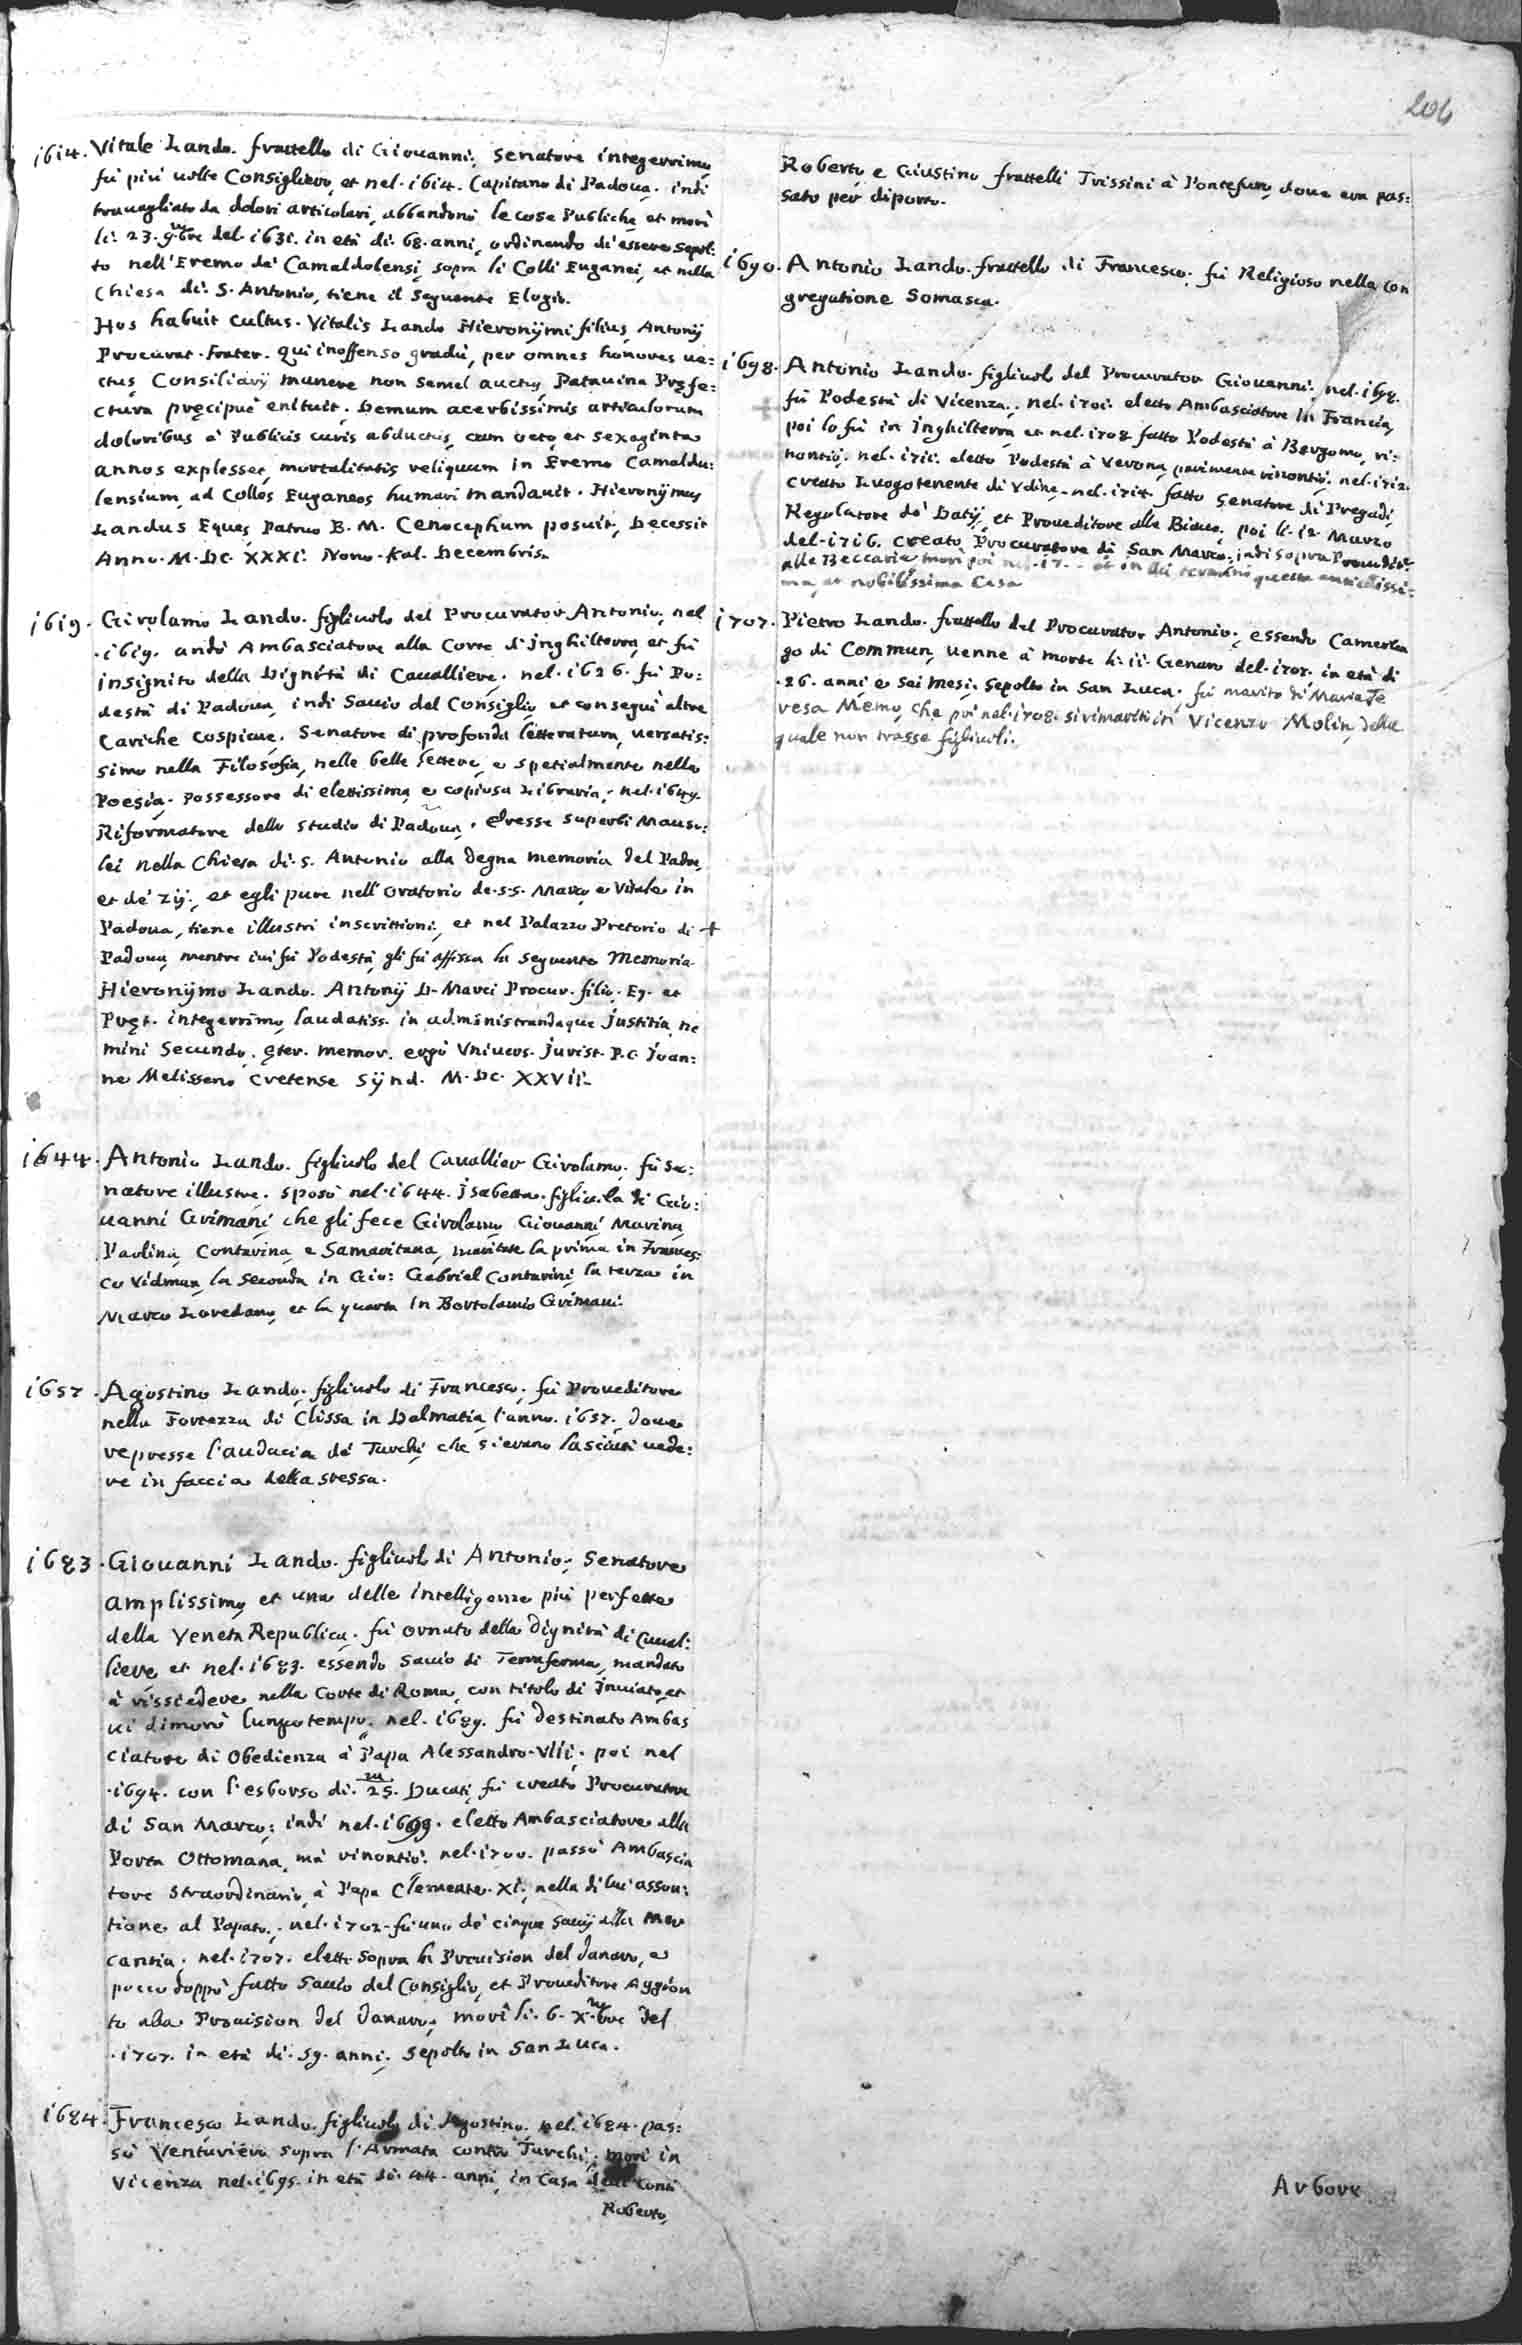 206
1614. Vitale Lando. frattello di Giouanni; Senatore integerrimo,
fù più uolte Consigliero, et nel. 1614. Capitano di Padoua. indi
trauagliato da dolori articolari, abbandonò le cose Publiche, et morì
li. 23. 9.bre del. 1631. in età di. 68. anni, ordinando di essere sepol:
to nell'Eremo de' Camaldolensi, sopra li Colli Euganei, et nella
Chiesa di. S. Antonio, tiene il seguente Elogio.
Hos habuit cultus. Vitalis Lando Hieronÿmi filius, Antonij
Procurat. Frater. qui inoffenso gradù, per omnes honores ue:
ctus, Consiliarij munere non semel auctus, Patauina Pręfe:
ctura pręcipuè enituit. Demum acerbissimis articulorum
doloribus à Publicis curis abductus, cum octo, et sexaginta
annos explesset, mortalitatis reliquum in Eremo Camaldu:
lensium, ad Colles Euganeos humari mandauit. Hieronÿmus
Landus Eques, Patruo B. M. Cenocephum posuit, Decessit
Anno. M. DC. XXXI. Nono. Kal. Decembris.
1619. Girolamo Lando. figliuolo del Procurator Antonio; nel
.1619. andò Ambasciatore alla Corte d'Inghilterra, et fù
insignito della Dignità di Cauallier̀e; nel. 1626. fù Po:
destà di Padoua, indi Sauio del Consiglio, et conseguì altre
Cariche cospicue. Senatore di profonda letteratura, uersatis:
simo nella Filosofia, nelle belle lettere, e spetialmente nella
Poesia. Possessore di elettissima, e copiosa Libraria; nel. 1649.
Riformatore dello Studio di Padoua. Eresse superbi Mauso:
lei nella Chiesa di. S. Antonio alla degna memoria del Padre,
et de' Zij; et egli pure nell'Oratorio de. S.S. Marco, e Vitale in
Padoua, tiene illustri inscrittioni, et nel Palazzo Pretorio di +
Padoua, mentre iui fù Podestà, gli fù affissa la seguente Memoria.
Hieronÿmo Lando. Antonij D. Marci Procur. filio. Eq. et
Pręt. integerrimo, laudatiss. in administrandaque Justitia, ne
mini Secundo. ęter. memor. ergò Uniuers. Jurist. P. C. Joan:
ne Melisseno Cretense Sÿnd. M. DC. XXVII.
1644. Antonio Lando. figliuolo del Cauallier Girolamo. fù Se:
natore illustre. sposò nel. 1644. Isabetta. figliuola di Gio:
uanni Grimani, che gli fece Girolamo, Giouanni, Marina,
Paolina, Contarina, e Samaritana, maritate la prima in Frances:
co Vidman, la seconda in Gio: Gabriel Contarini, la terza in
Marco Loredano, et la quarta in Bortolamio Grimani.
1657. Agostino Lando. figliuolo di Francesco; fù Proueditore
nella Fortezza di Clissa in Dalmatia, l'anno. 1657. doue
represse l'audacia de' Turchi, che s'erano lasciati uede:
re in faccia della stessa.
1683. Giouanni Lando. figliuolo di Antonio; Senatore
amplissimo, et una delle intelligenze più perfette
della Veneta Republica. fù ornato della Dignità di Caual:
liere, et nel. 1683. essendo Sauio di Terraferma, mandato
à rissiedere nella Corte di Roma, con titolo di Inuiato, et
ui dimorò lungo tempo. nel. 1689. fù destinato Ambas
ciatore di Obedienza à Papa Alessandro. VIII. poi nel
.1694. con l'esborso di. 25. m Ducati, fù creato Procuratore
di San Marco; indi nel. 1699. eletto Ambasciatore alla
Porta Ottomana, mà rinontiò. nel. 1700. passò Ambascia
tore Straordinario, à Papa Clemente. XI; nella di lui assun:
tione al Papato; nel. 1702. fù uno de' cinque Sauij alla Mer
cantia; nel. 1707. eletto sopra la Prouision del danaro, e
pocco doppò fatto Sauio del Consiglio, et Proueditore Aggion
to alla Prouision del danaro; morì li. 6. X.bre del
.1707. in età di. 59. anni; sepolto in San Luca.
1684. Francesco Lando. figliuolo di Agostino. nel. 1684. pas:
sò Venturiero sopra l'Armata contro Turchi; morì in
Vicenza nel. 1695. in età di. 44. anni, in Casa delli Conti
Roberto,
Roberto, e Giustino frattelli Trissini à Ponte furo, doue era pas:
sato per diporto.
1690. Antonio Lando. frattello di Francesco; fù Religioso nella Con
gregatione Somasca.
1698. Antonio Lando. figliuolo del Procurator Giouanni; nel. 1698.
+ fù Podestà di Vicenza; nel. 1701. eletto Ambasciatore in Francia,
poi lo fù in Inghilterra, et nel. 1708 fatto Podestà à Bergomo, ri:
nontiò; nel. 1711. eletto Podestà à Verona, parimente rinontiò; nel. 1712.
creato Luogotenente di Vdine. nel. 1714. fatto Senatore di Pregadi,
Regolatore de' Datij, et Proueditore alle Biaue; poi li. 12. Marzo
del. 1716. creato Procuratore di San Marco; indi sopra Proueditr
alle Beccarie morì poi nel. 17 et in lui terminò questa antichissi:
ma, et nobilissima Casa
1707. Pietro Lando. frattello del Procurator Antonio; essendo Camerlen
go di Commun, uenne à morte li. 11. Genaro del. 1707. in età di
.26. anni e sei mesi. sepolto in San Luca; fù marito di Maria Te
resa Memo, che poi nel. 1708. si rimaritò in Vicenzo Molin, della
quale non trasse figliuoli.
Arbore